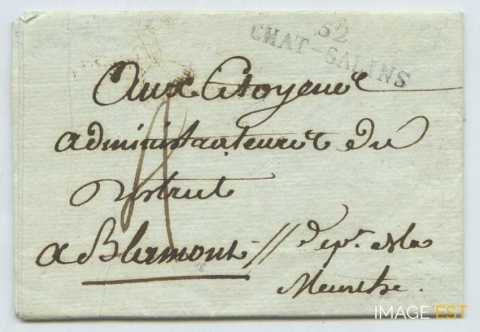 52
CHAT-SALINS
Aux Citoyens
administrateurs du
District
a Blamont // dep.t de la
Meurthe.
IMAGE'EST